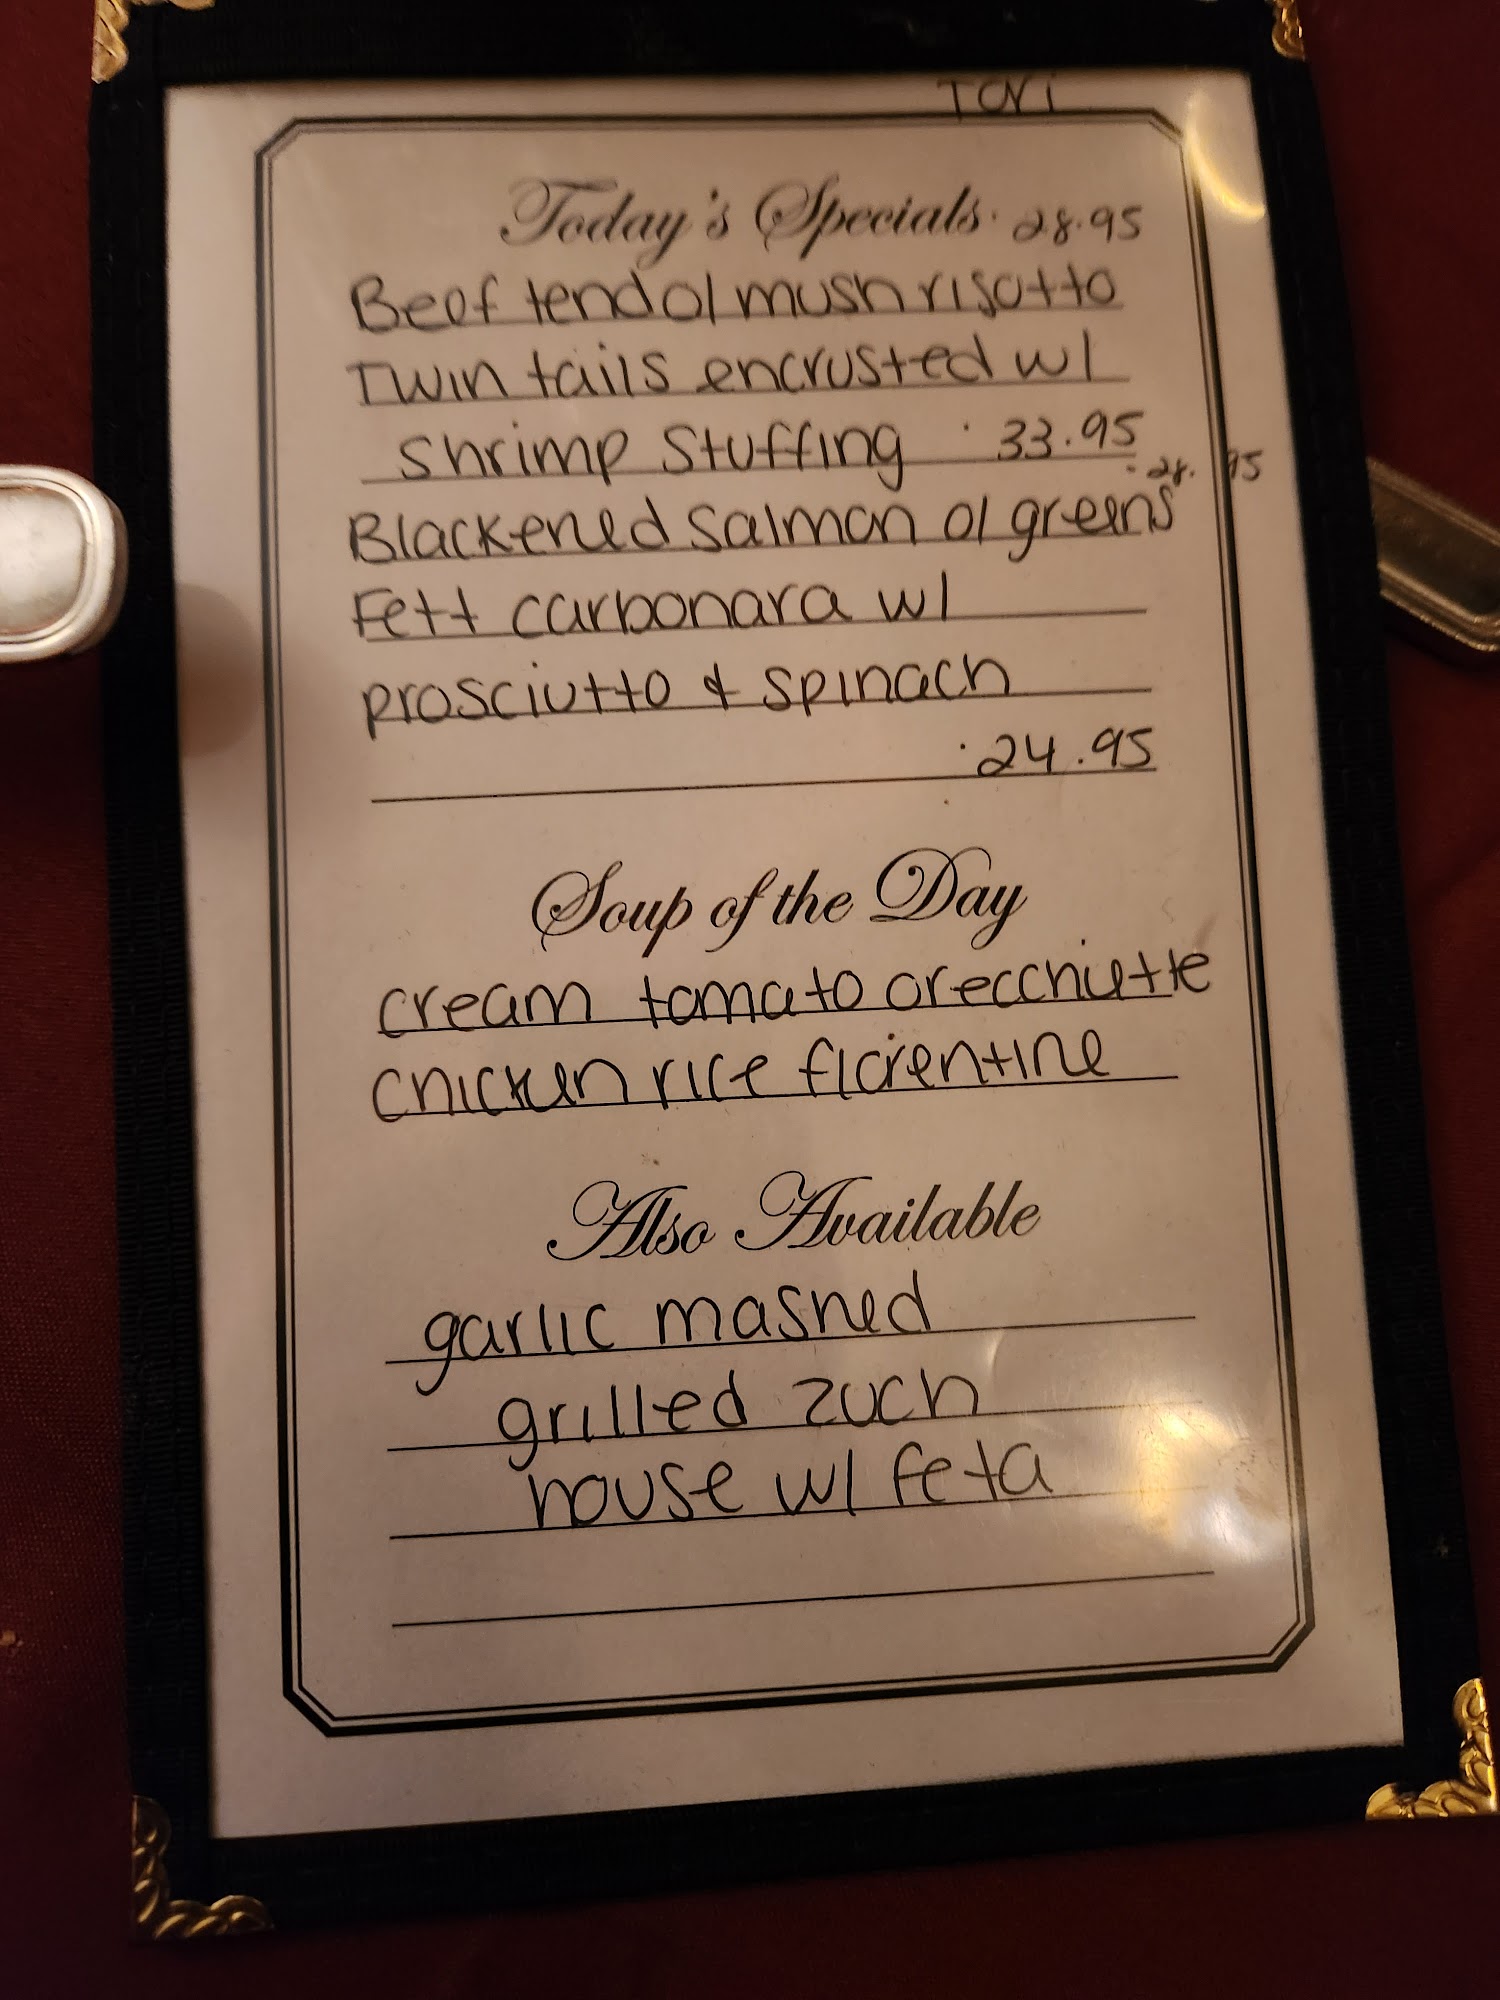 Tori
Today's Specials · 28.95
Beef tend o/ mush risotto
Twin tails encrusted w/
shrimp stuffing · 33.95
- 28.95
Blackened salmon o/ greens
Fett carbonara w/
prosciutto & spinach
· 24.95
Soup of the Day
cream tomato orecchiette
chicken rice florentine
Also Available
garlic mashed
grilled zuch
house w/ feta